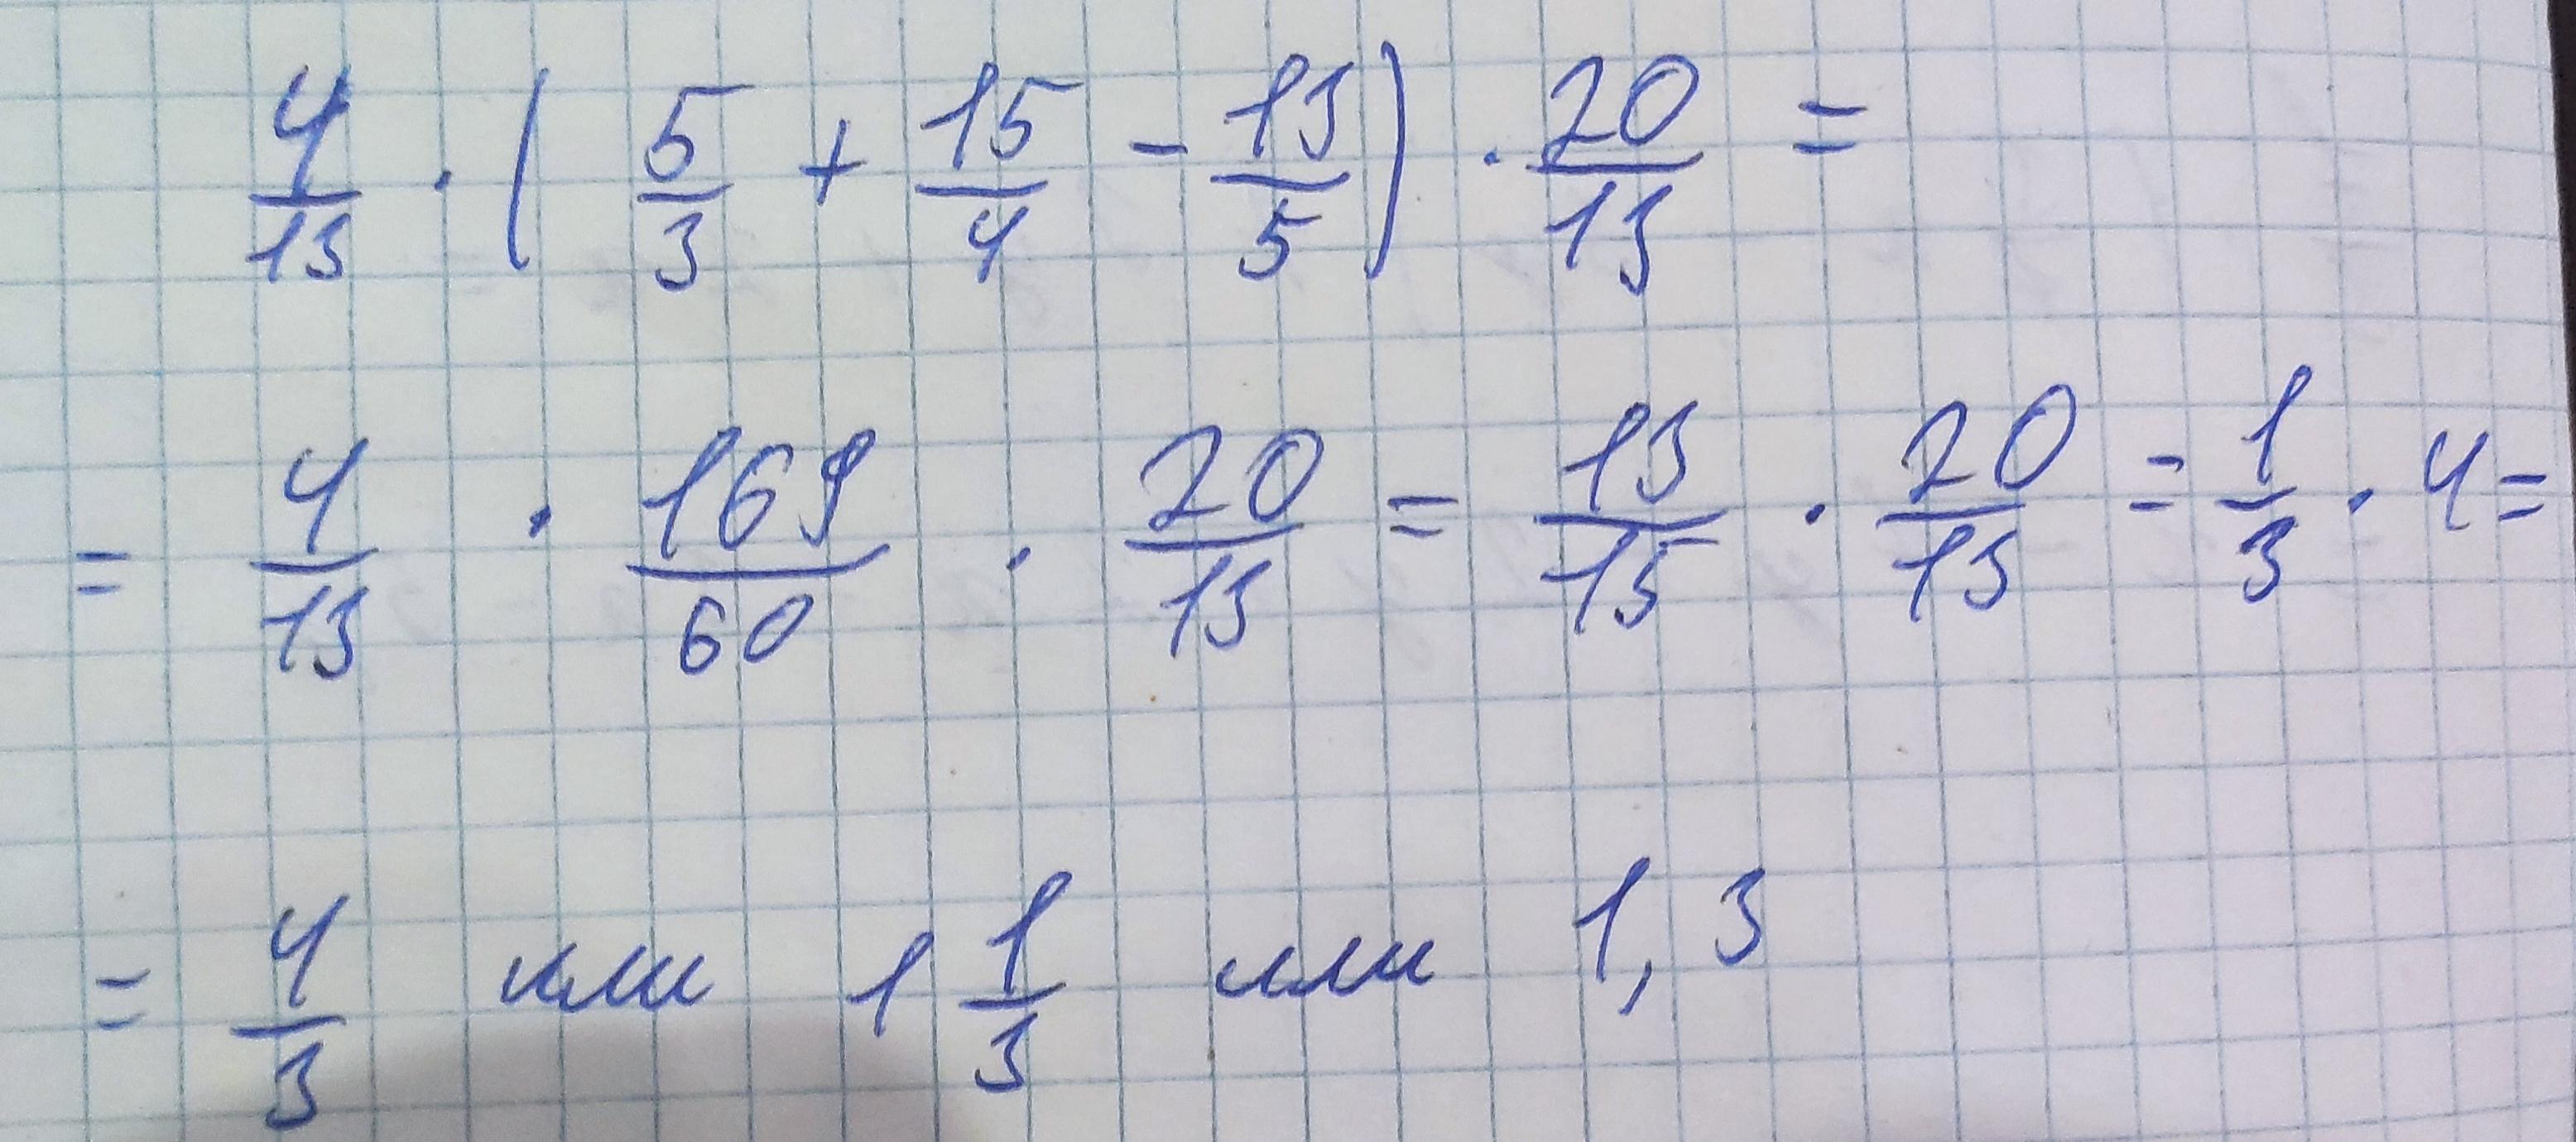 4/13 · ( 5/3 + 15/4 - 13/5 ) · 20/13 =
= 4/13 · 169/60 · 20/13 = 13/15 · 20/13 = 1/3 · 4 =
= 4/3 или 1 1/3 или 1,3